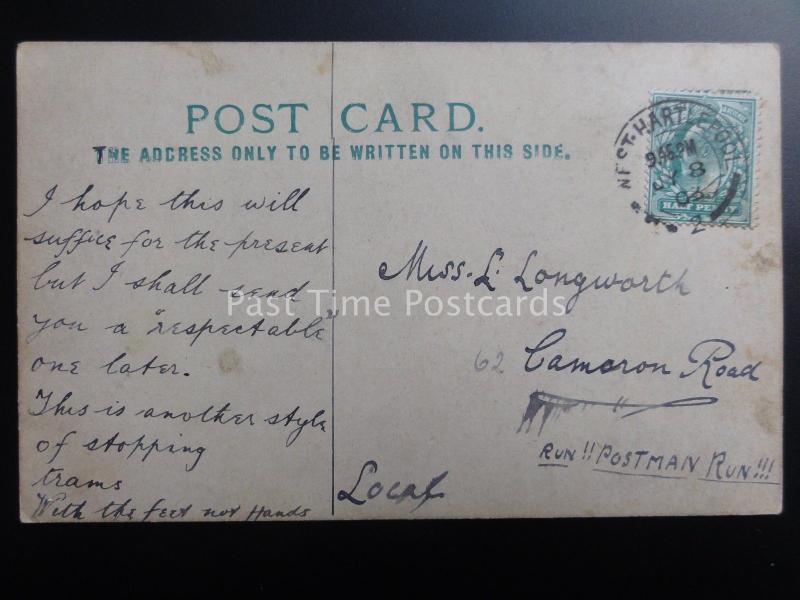 POST CARD.
THE ADDRESS ONLY TO BE WRITTEN ON THIS SIDE.
I hope this will
suffice for the present
but I shall send
you a "respectable"
one later.
This is another style
of stopping
trams
With the feet not Hands
WEST HARTLEPOOL
9.45PM
JY 8
03
2
HALF PENNY
Miss. L. Longworth
62 Cameron Road
"
RUN!! POSTMAN RUN!!!
Local
Past Time Postcards